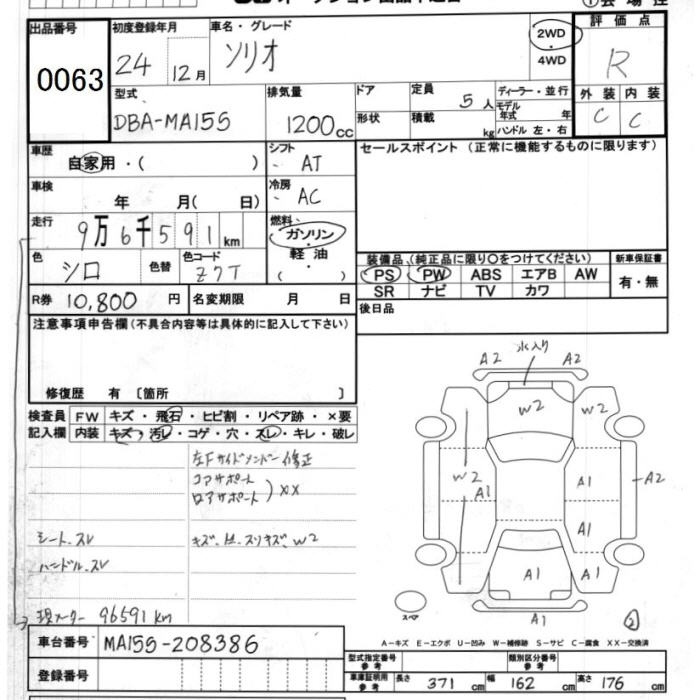 出品番号
0063
初度登録年月
24年 12月
車名・グレード
ソリオ
2WD
・
4WD
評価点
R
外装 内装
C C
型式
DBA-MA15S
排気量
1200cc
ドア
形状
定員
5人
積載
kg
ディーラー・並行
モデル年式 年
ハンドル 左・右
車歴
自家用・( )
シフト
AT
セールスポイント(正常に機能するものに限ります)
車検
年 月( 日)
冷房
AC
走行
9万6千591km
燃料
ガソリン
・
軽油
・
( )
色
シロ
色替
色コード
Z7T
装備品(純正品に限り○をつけてください)
新車保証書
PS PW ABS エアB AW
SR ナビ TV カワ
有・無
R券 10,800円
名変期限 月 日
後日品
注意事項申告欄(不具合内容等は具体的に記入して下さい)
修復歴 有〔箇所 〕
検査員記入欄
FW キズ・飛石・ヒビ割・リペア跡・×要
内装 キズ・汚レ・コゲ・穴・スレ・キレ・破レ
左Fサイドメンバー修正
コアサポート
ロアサポート
)XX
シート.スレ
ハンドル.スレ
現メーター 96591km
A2 水入り A2
W2 W2
W2
A1 A1 A2
A1
A1 A1
A1
スペア
A-キズ E-エクボ U-凹み W-補修跡 S-サビ C-腐食 XX-交換済
車台番号 MA15S-208386
登録番号
型式指定番号 参考
類別区分番号 参考
車庫証明用 参考
長さ 371cm 幅 162cm 高さ 176cm